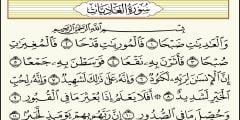 سُورَةُ العَادِيَاتِ
بِسْمِ اللَّهِ الرَّحْمَٰنِ الرَّحِيمِ
وَالْعَادِيَاتِ ضَبْحًا ۝١ فَالْمُورِيَاتِ قَدْحًا ۝٢ فَالْمُغِيرَاتِ
صُبْحًا ۝٣ فَأَثَرْنَ بِهِ نَقْعًا ۝٤ فَوَسَطْنَ بِهِ جَمْعًا ۝٥
إِنَّ الْإِنسَانَ لِرَبِّهِ لَكَنُودٌ ۝٦ وَإِنَّهُ عَلَىٰ ذَٰلِكَ لَشَهِيدٌ ۝٧ وَإِنَّهُ لِحُبِّ
الْخَيْرِ لَشَدِيدٌ ۝٨ أَفَلَا يَعْلَمُ إِذَا بُعْثِرَ مَا فِي الْقُبُورِ ۝٩
وَحُصِّلَ مَا فِي الصُّدُورِ ۝١٠